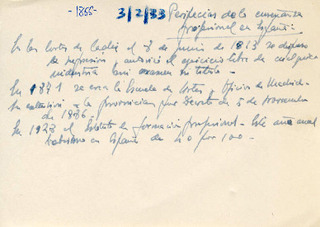 -1855-
3/2/33 Peripecias de la enseñanza
profesional en España:
En las Cortes de Cadiz el 8 de junio de 1813 se dispuso
la y autorizó el ejercicio libre de cualquier
industria sin examen ni título -
En 1871 se crea la Escuela de Artes y Oficios de Madrid -
Se extendió a la provincias por Decreto de 5 de Noviembre
de 1886 -
En 1928 el Estatuto de formación profesional - Este año anal
en España de 40 por 100 -